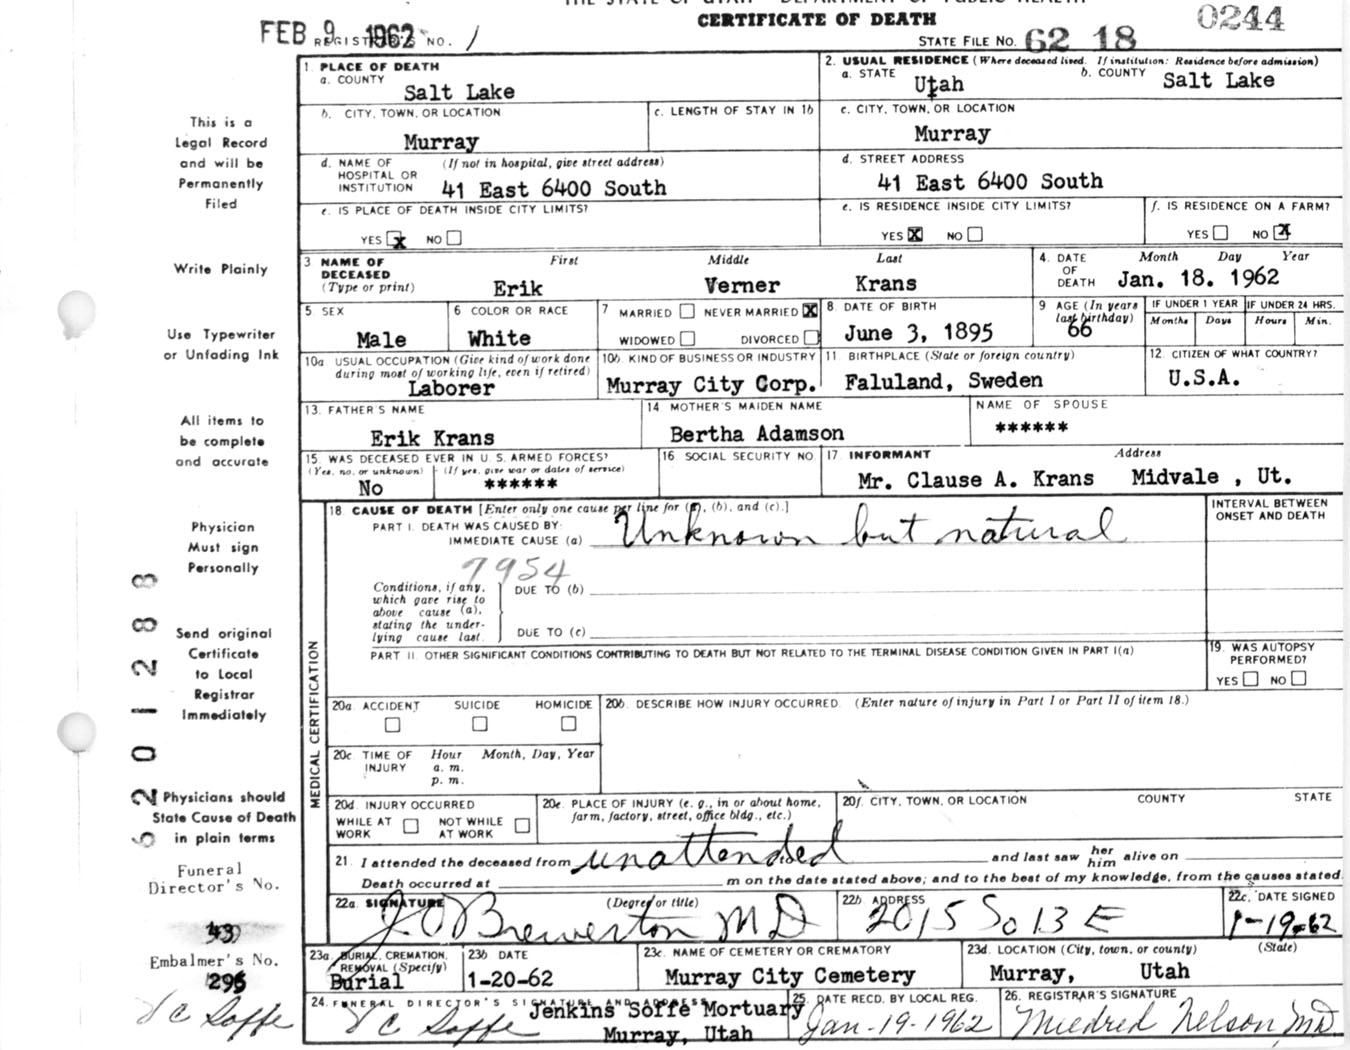 CERTIFICATE OF DEATH
0244
FEB 9 1962 REGISTRAR'S NO. 1
STATE FILE NO. 62 18
1. PLACE OF DEATH
a. COUNTY
Salt Lake
2. USUAL RESIDENCE (Where deceased lived. If institution: Residence before admission)
a. STATE Utah
b. COUNTY Salt Lake
b. CITY, TOWN, OR LOCATION
Murray
c. LENGTH OF STAY IN 1b
c. CITY, TOWN, OR LOCATION
Murray
d. NAME OF HOSPITAL OR INSTITUTION (If not in hospital, give street address)
41 East 6400 South
d. STREET ADDRESS
41 East 6400 South
e. IS PLACE OF DEATH INSIDE CITY LIMITS?
YES X NO
e. IS RESIDENCE INSIDE CITY LIMITS?
YES X NO
f. IS RESIDENCE ON A FARM?
YES NO X
3 NAME OF DECEASED (Type or print)
First Middle Last
Erik Verner Krans
4. DATE OF DEATH
Month Day Year
Jan. 18. 1962
5. SEX
Male
6 COLOR OR RACE
White
7 MARRIED NEVER MARRIED X
WIDOWED DIVORCED
8. DATE OF BIRTH
June 3, 1895
9 AGE (In years last birthday)
66
IF UNDER 1 YEAR
Months Days
IF UNDER 24 HRS.
Hours Min.
10a USUAL OCCUPATION (Give kind of work done during most of working life, even if retired)
Laborer
10b. KIND OF BUSINESS OR INDUSTRY
Murray City Corp.
11. BIRTHPLACE (State or foreign country)
Faluland, Sweden
12. CITIZEN OF WHAT COUNTRY?
U.S.A.
13. FATHER'S NAME
Erik Krans
14 MOTHER'S MAIDEN NAME
Bertha Adamson
NAME OF SPOUSE
******
15. WAS DECEASED EVER IN U. S. ARMED FORCES?
(Yes, no, or unknown) (If yes, give war or dates of service)
No ******
16 SOCIAL SECURITY NO.
17. INFORMANT Address
Mr. Clause A. Krans Midvale , Ut.
MEDICAL CERTIFICATION
18. CAUSE OF DEATH [Enter only one cause per line for (a), (b), and (c).]
PART I. DEATH WAS CAUSED BY:
IMMEDIATE CAUSE (a) Unknown but natural
INTERVAL BETWEEN ONSET AND DEATH
7954
Conditions, if any, which gave rise to above cause (a), stating the underlying cause last.
DUE TO (b)
DUE TO (c)
PART II. OTHER SIGNIFICANT CONDITIONS CONTRIBUTING TO DEATH BUT NOT RELATED TO THE TERMINAL DISEASE CONDITION GIVEN IN PART I(a)
19. WAS AUTOPSY PERFORMED?
YES NO
20a. ACCIDENT SUICIDE HOMICIDE
20b. DESCRIBE HOW INJURY OCCURRED. (Enter nature of injury in Part I or Part II of item 18.)
20c. TIME OF INJURY
Hour Month, Day, Year
a. m.
p. m.
20d. INJURY OCCURRED
WHILE AT WORK NOT WHILE AT WORK
20e. PLACE OF INJURY (e. g., in or about home, farm, factory, street, office bldg., etc.)
20f. CITY, TOWN, OR LOCATION COUNTY STATE
21. I attended the deceased from unattended and last saw her him alive on
Death occurred at m on the date stated above; and to the best of my knowledge, from the causes stated.
22a. SIGNATURE (Degree or title)
J. O. Brewerton MD
22b. ADDRESS
2015 So 13 E
22c. DATE SIGNED
1-19-62
23a. BURIAL, CREMATION, REMOVAL (Specify)
Burial
23b DATE
1-20-62
23c. NAME OF CEMETERY OR CREMATORY
Murray City Cemetery
23d. LOCATION (City, town, or county) (State)
Murray, Utah
24. FUNERAL DIRECTOR'S SIGNATURE AND ADDRESS
V C Soffe
Jenkins Soffe Mortuary
Murray, Utah
25. DATE RECD. BY LOCAL REG.
Jan-19-1962
26. REGISTRAR'S SIGNATURE
Mildred Nelson MD
This is a
Legal Record
and will be
Permanently
Filed
Write Plainly
Use Typewriter
or Unfading Ink
All items to
be complete
and accurate
Physician
Must sign
Personally
Send original
Certificate
to Local
Registrar
Immediately
Physicians should
State Cause of Death
in plain terms
Funeral
Director's No.
43
Embalmer's No.
296
V C Soffe